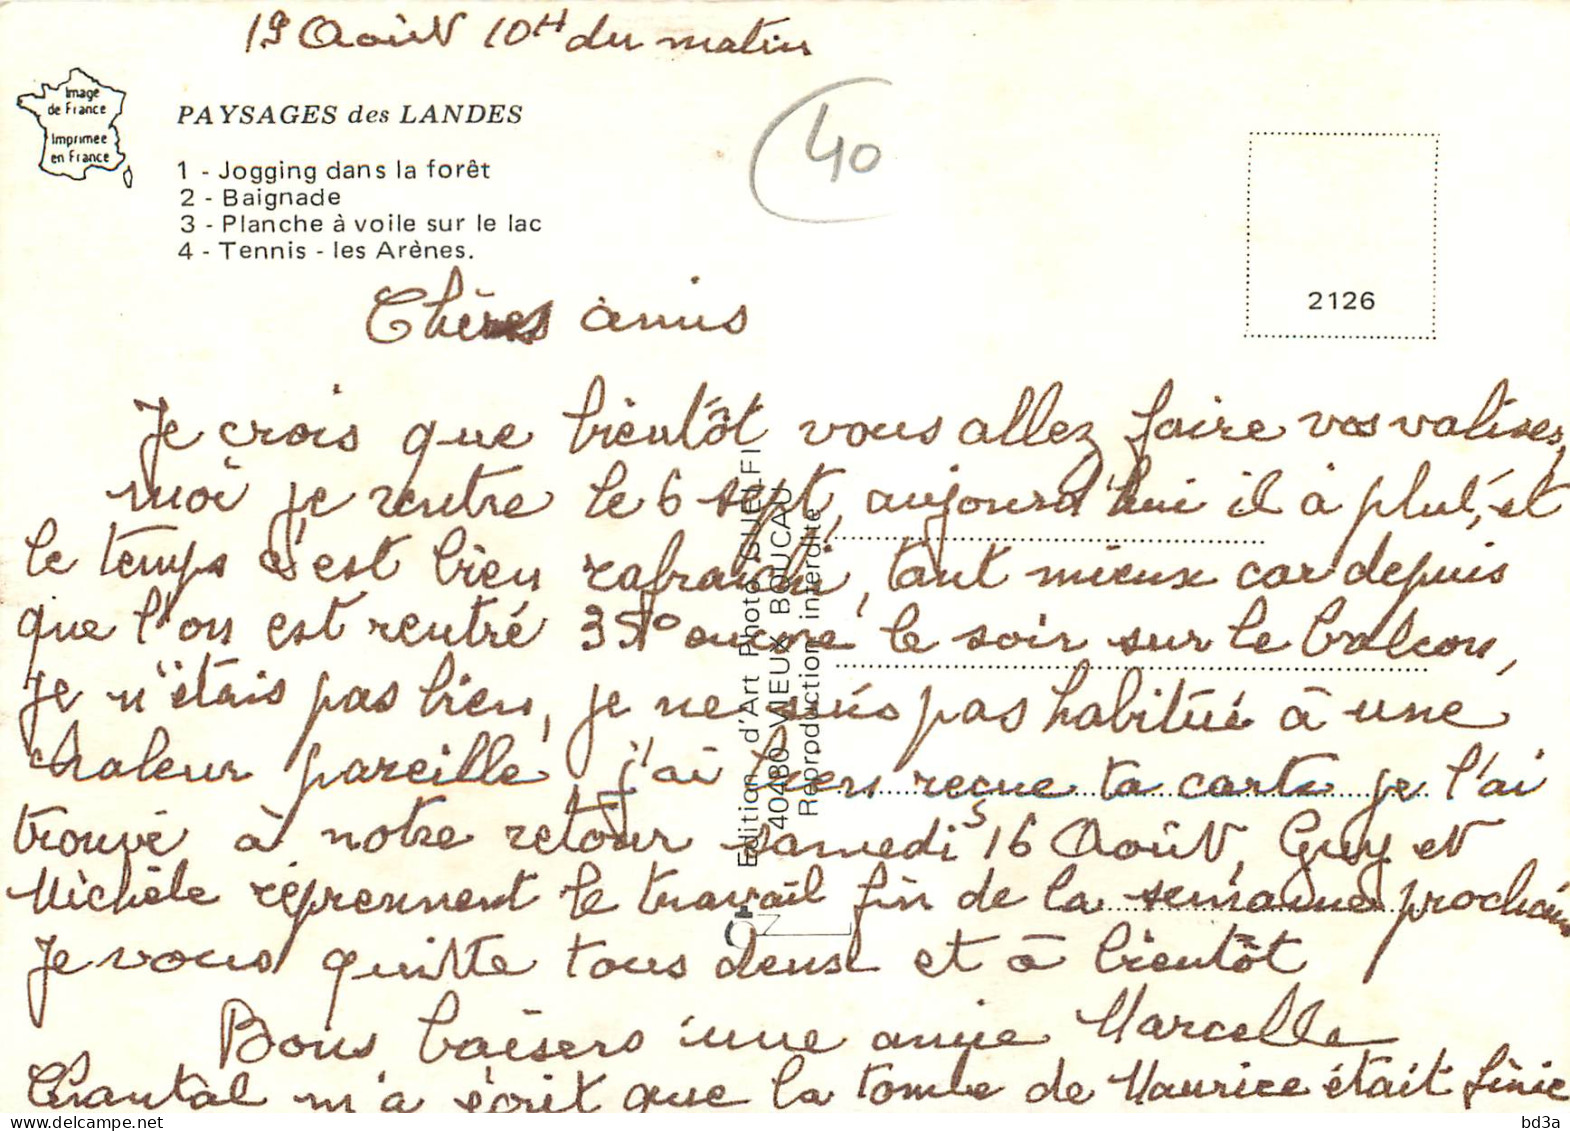 19 Août 10H du matin
Image
de France
Imprimée
en France
PAYSAGES des LANDES
40
1 - Jogging dans la forêt
2 - Baignade
3 - Planche à voile sur le lac
4 - Tennis - les Arènes.
2126
Chères amis
Je crois que bientôt vous allez faire vos valises,
moi je rentre le 6 sept, aujourd'hui il à plut, et
le temps c'est bien rafraichi, tant mieux car depuis
que l'on est rentré 35° encore le soir sur le balcon,
je n'étais pas bien, je ne suis pas habitué à une
chaleur pareille, j'ai bien reçue ta carte je l'ai
trouvé à notre retour samedi 16 Août, Guy et
Michèle réprennent le travail fin de la semaine prochain
Je vous quitte tous deux et à bientôt
Bons baisers une amie Marcelle
Chantal m'a écrit que la tombe de Maurice était finie
Edition d'Art Photo GUELFI
40480 VIEUX BOUCAU
Reproduction interdite
delcampe.net
bd3a